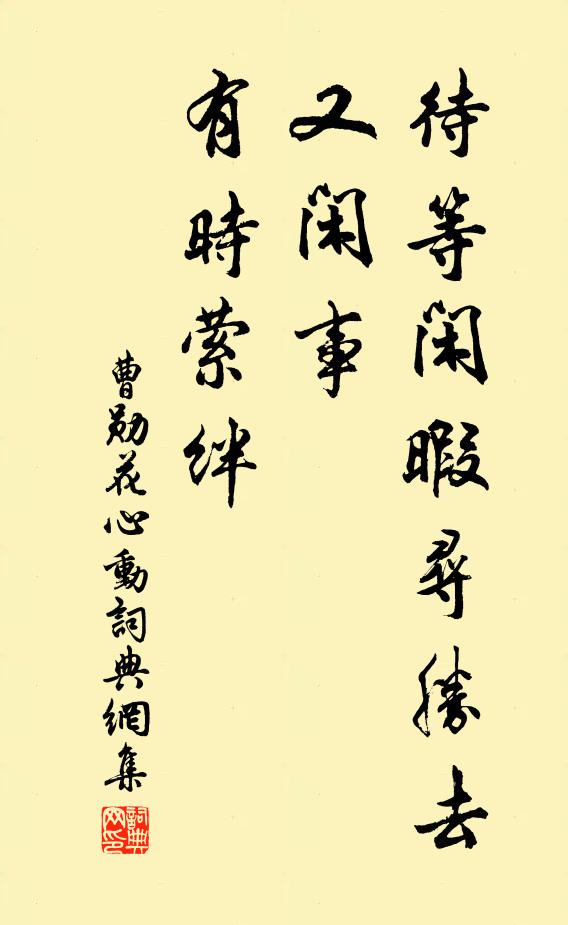 待等閑暇尋勝去
又閑事
有時縈絆
曹勛花心動詞典網集
詞典網印